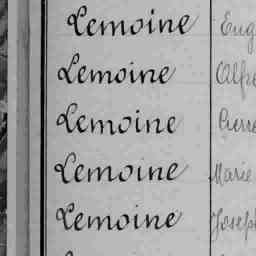 Lemoine Eug
Lemoine Alfre
Lemoine Pierre
Lemoine Marie
Lemoine Joseph